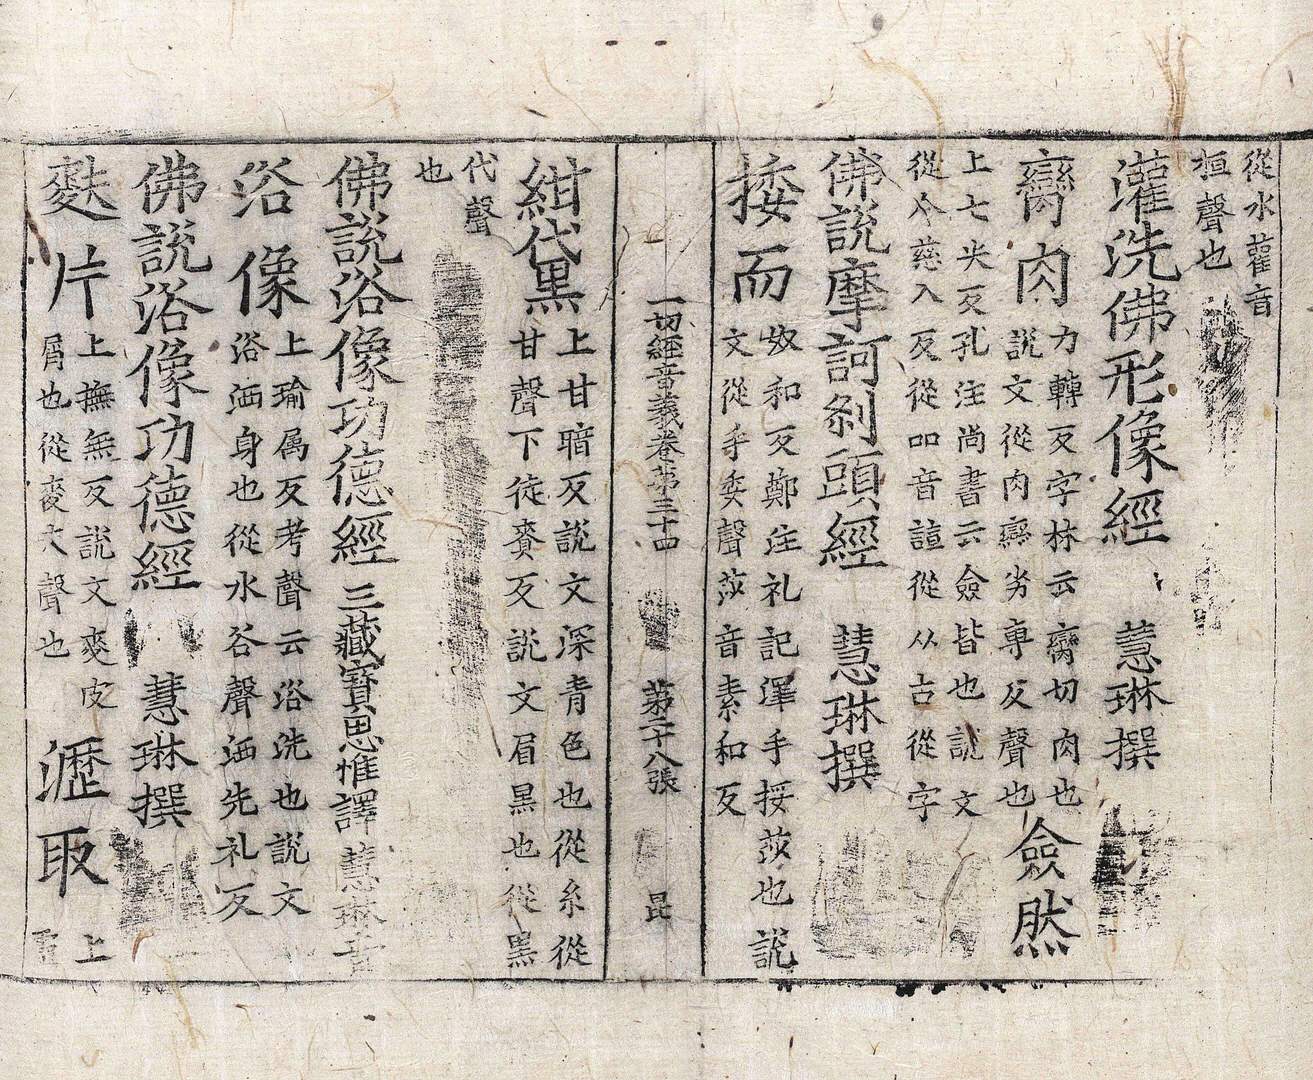 從水雚音
桓聲也
灌洗佛形像經 慧琳撰
臠肉 力轉反字林云臠切肉也
說文從肉䜌劣專反聲也 僉然
上七尖反孔注尚書云僉皆也說文
從亼慈入反從吅音諠從从古從字
佛說摩訶剎頭經 慧琳撰
捼而 奴和反鄭注礼記澤手捼莎也說
文從手委聲莎音素和反
一切經音義卷第三十四 第二十八張 昆
紺代黑 上甘暗反說文深青色也從糸從
甘聲下徒賚反說文眉黑也從黑
代聲
也
佛說浴像功德經 三藏寶思惟譯 慧琳音
浴像 上瑜属反考聲云浴洗也說文
浴洒身也從水谷聲洒先礼反
佛說浴像功德經 慧琳撰
麩片 上撫無反說文麥皮
屑也從麥夫聲也 瀝取 上